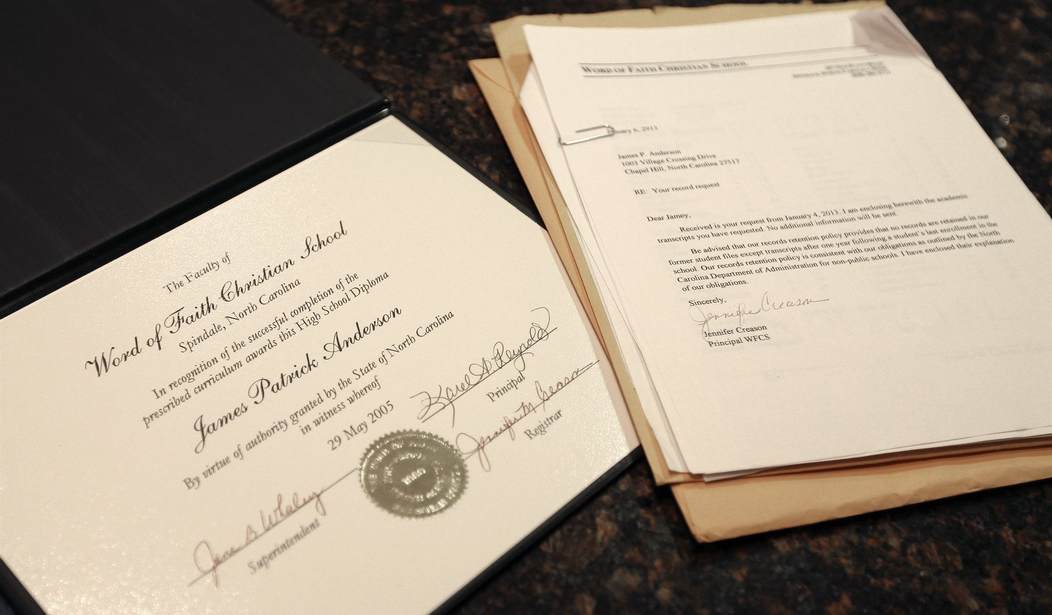 The Faculty of
Word of Faith Christian School
Spindale, North Carolina
In recognition of the successful completion of the
prescribed curriculum awards this High School Diploma
James Patrick Anderson
By virtue of authority granted by the State of North Carolina
in witness whereof
29 May 2005
Karel A Reynolds
Principal
Registrar
Jane B Whaley
Superintendent
WORD OF FAITH CHRISTIAN SCHOOL
6, 2013
James P. Anderson
1003 Village Crossing Drive
Chapel Hill, North Carolina 27517
RE: Your record request
Dear Jamey,
Received is your request from January 4, 2013. I am enclosing herewith the academic
transcripts you have requested. No additional information will be sent
Be advised that our records retention policy provides that no records are retained in our
former student files except transcripts after one year following a student's last enrollment in the
school. Our records retention policy is consistent with our obligations as outlined by the North
Carolina Department of Administration for non-public schools. I have enclosed their explanation
of our obligations.
Sincerely,
Jennifer Creason
Jennifer Creason
Principal WFCS